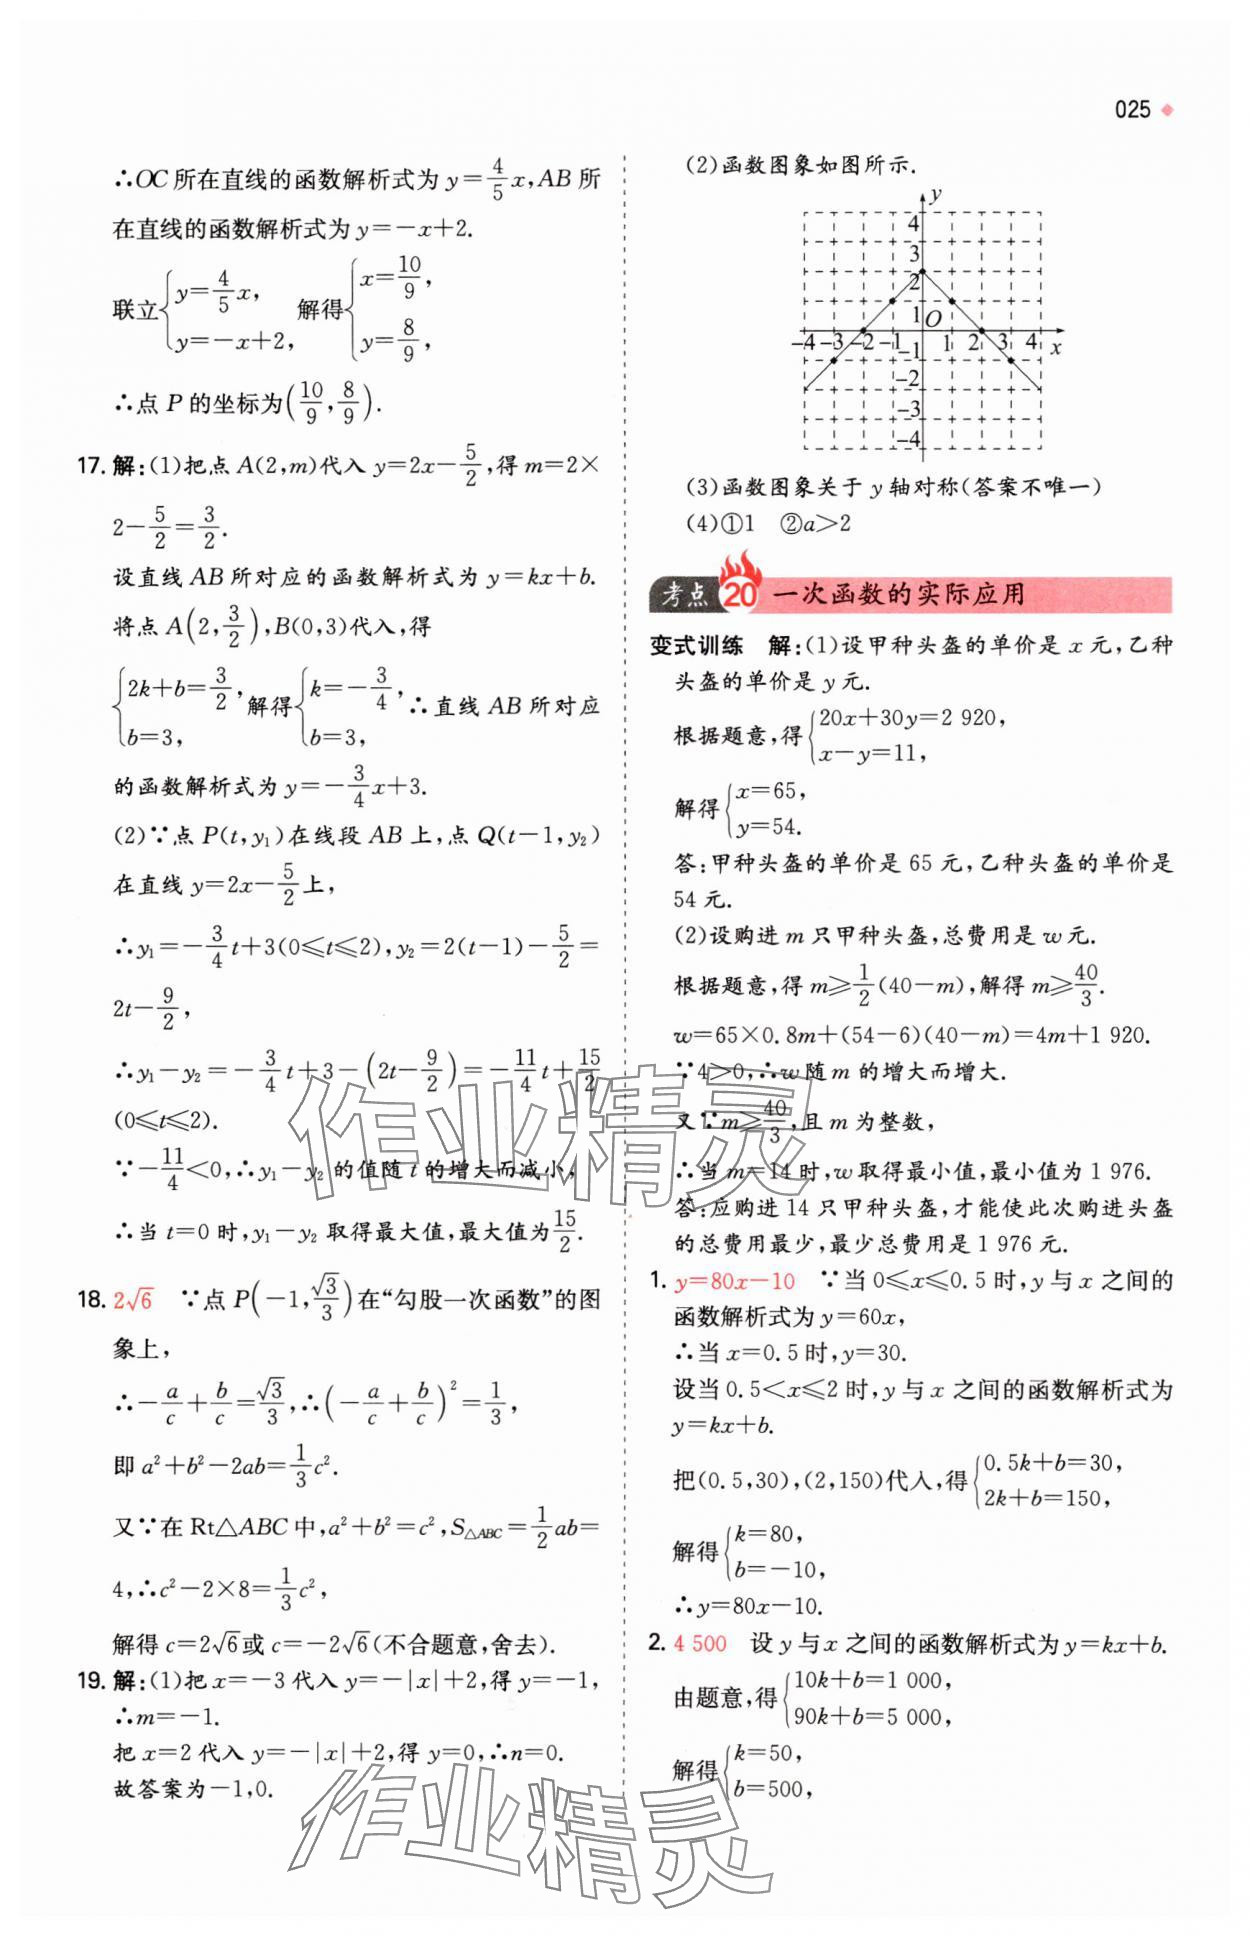 025
∴OC所在直线的函数解析式为y=4/5x,AB所
在直线的函数解析式为y=-x+2.
联立{y=4/5x, y=-x+2, 解得{x=10/9, y=8/9,
∴点P的坐标为(10/9,8/9).
17.解:(1)把点A(2,m)代入y=2x-5/2,得m=2×
2-5/2=3/2.
设直线AB所对应的函数解析式为y=kx+b.
将点A(2,3/2),B(0,3)代入,得
{2k+b=3/2, b=3, 解得{k=-3/4, b=3, ∴直线AB所对应
的函数解析式为y=-3/4x+3.
(2)∵点P(t,y₁)在线段AB上,点Q(t-1,y₂)
在直线y=2x-5/2上,
∴y₁=-3/4t+3(0≤t≤2),y₂=2(t-1)-5/2=
2t-9/2,
∴y₁-y₂=-3/4t+3-(2t-9/2)=-11/4t+15/2
(0≤t≤2).
∵-11/4<0,∴y₁-y₂的值随t的增大而减小,
∴当t=0时,y₁-y₂取得最大值,最大值为15/2.
18.2√6 ∵点P(-1,√3/3)在“勾股一次函数”的图
象上,
∴-a/c+b/c=√3/3,∴(-a/c+b/c)²=1/3,
即a²+b²-2ab=1/3c².
又∵在Rt△ABC中,a²+b²=c²,S△ABC=1/2ab=
4,∴c²-2×8=1/3c²,
解得c=2√6或c=-2√6(不合题意,舍去).
19.解:(1)把x=-3代入y=-|x|+2,得y=-1,
∴m=-1.
把x=2代入y=-|x|+2,得y=0,∴n=0.
故答案为-1,0.
(2)函数图象如图所示.
y
4
3
2
1
O
-4 -3 -2 -1 1 2 3 4 x
-1
-2
-3
-4
(3)函数图象关于y轴对称(答案不唯一)
(4)①1 ②a>2
考点20 一次函数的实际应用
变式训练 解:(1)设甲种头盔的单价是x元,乙种
头盔的单价是y元.
根据题意,得{20x+30y=2 920, x-y=11,
解得{x=65, y=54.
答:甲种头盔的单价是65元,乙种头盔的单价是
54元.
(2)设购进m只甲种头盔,总费用是w元.
根据题意,得m≥1/2(40-m),解得m≥40/3.
w=65×0.8m+(54-6)(40-m)=4m+1 920.
∵4>0,∴w随m的增大而增大.
又∵m≥40/3,且m为整数,
∴当m=14时,w取得最小值,最小值为1 976.
答:应购进14只甲种头盔,才能使此次购进头盔
的总费用最少,最少总费用是1 976元.
1.y=80x-10 ∵当0≤x≤0.5时,y与x之间的
函数解析式为y=60x,
∴当x=0.5时,y=30.
设当0.5<x≤2时,y与x之间的函数解析式为
y=kx+b.
把(0.5,30),(2,150)代入,得{0.5k+b=30, 2k+b=150,
解得{k=80, b=-10,
∴y=80x-10.
2.4 500 设y与x之间的函数解析式为y=kx+b.
由题意,得{10k+b=1 000, 90k+b=5 000,
解得{k=50, b=500,
作业精灵
作业精灵